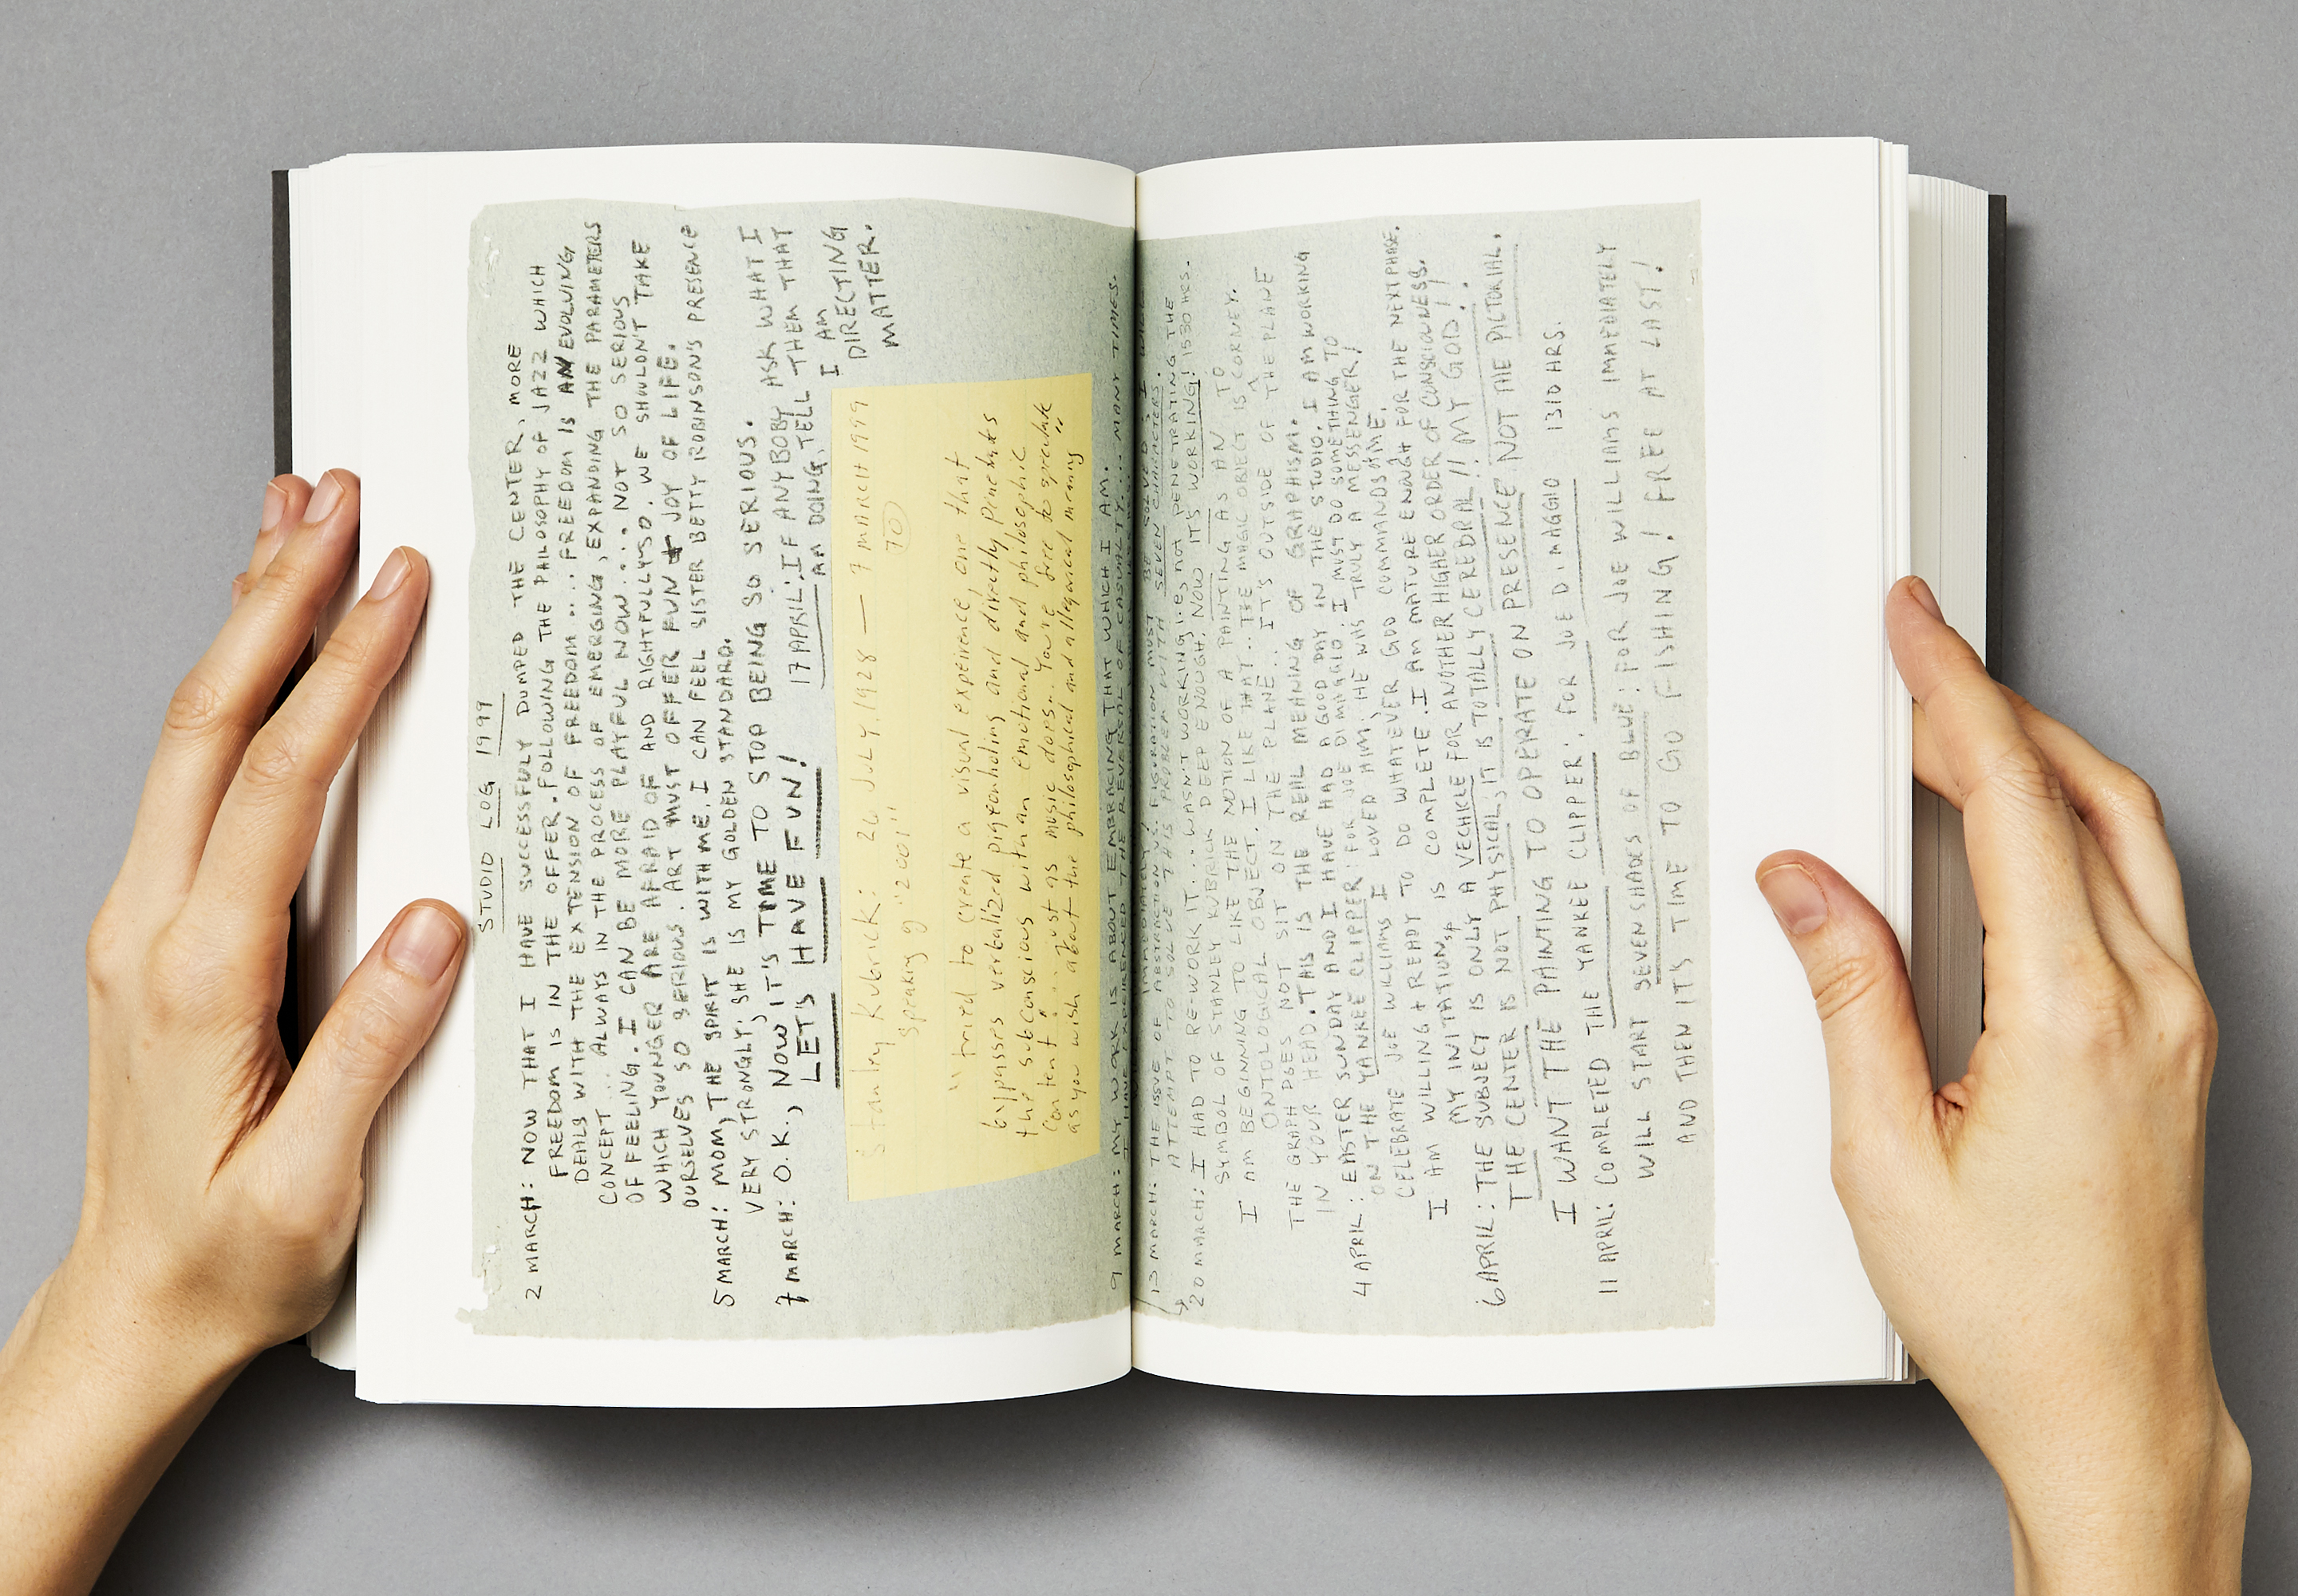 STUDIO LOG 1999
2 MARCH: NOW THAT I HAVE SUCCESSFULY DUMPED THE CENTER, MORE
FREEDOM IS IN THE OFFER. FOLLOWING THE PHILOSOPHY OF JAZZ WHICH
DEALS WITH THE EXTENSION OF FREEDOM... FREEDOM IS AN EVOLVING
CONCEPT... ALWAYS IN THE PROCESS OF EMERGING, EXPANDING THE PARAMETERS
OF FEELING. I CAN BE MORE PLAYFUL NOW.... NOT SO SERIOUS
WHICH YOUNGER ARE AFRAID OF AND RIGHTFULLY SO. WE SHOULDN'T TAKE
OURSELVES SO SERIOUS. ART MUST OFFER FUN + JOY OF LIFE.
5 MARCH: MOM, THE SPIRIT IS WITH ME. I CAN FEEL SISTER BETTY ROBINSON'S PRESENCE
VERY STRONGLY; SHE IS MY GOLDEN STANDARD.
7 MARCH: O.K., NOW IT'S TIME TO STOP BEING SO SERIOUS.
LET'S HAVE FUN!
17 APRIL: IF ANYBOBY ASK WHAT I
AM DOING, TELL THEM THAT
I AM
DIRECTING
MATTER.
Stanley Kubrick: 26 JULY, 1928 — 7 MARCH 1999
speaking "2001" 70
"I tried to create a visual expeirence, one that
bypasses verbalized pigeonholing and directly penetrates
the subconscious with an emotional and philosophic
content... just as music does. You're free to speculate
as you wish about the philosophical and allegorical meaning"
9 MARCH: MY WORK IS ABOUT EMBRACING THAT WHICH I AM.
I HAVE EXPEIRENCED THE REVERSAL OF CASUALTY... MANY TIMES.
13 MARCH: THE ISSUE OF ABSTRACTION VS. FIGURATION MUST BE SOLVED & I WILL
ATTEMPT TO SOLVE THIS PROBLEM WITH SEVEN CHARACTERS.
20 MARCH: I HAD TO RE-WORK IT... WASN'T WORKING; i.e. not PENETRATING THE
SYMBOL OF STANLEY KUBRICK DEEP ENOUGH. NOW IT'S WORKING! 1530 HRS.
I AM BEGINNING TO LIKE THE NOTION OF A PAINTING AS AN
ONTOLOGICAL OBJECT. I LIKE THAT... THE MAGIC OBJECT IS TO CORNEY.
THE GRAPH DOES NOT SIT ON THE PLANE... IT'S OUTSIDE OF THE PLANE
IN YOUR HEAD. THIS IS THE REAL MEANING OF GRAPHISM.
4 APRIL: EASTER SUNDAY AND I HAVE HAD A GOOD DAY IN THE STUDIO. I AM WORKING
ON THE YANKEE CLIPPER: FOR JOE DIMAGGIO. I MUST DO SOMETHING TO
CELEBRATE JOE WILLIAMS. I LOVED HIM; HE WAS TRULY A MESSENGER!
I AM WILLING + READY TO DO WHATEVER GOD COMMANDS OF ME.
MY INITATIONSP IS COMPLETE. I AM MATURE ENOUGH FOR THE NEXT PHASE.
6 APRIL: THE SUBJECT IS ONLY A VECHICLE FOR ANOTHER HIGHER ORDER OF CONSCIOUNESS.
THE CENTER IS NOT PHYSICAL; IT IS TOTALLY CEREBRAL!! MY GOD!!
I WANT THE PAINTING TO OPERATE ON PRESENCE NOT THE PICTORIAL.
11 APRIL: COMPLETED THE YANKEE CLIPPER: FOR JOE DIMAGGIO 1310 HRS.
WILL START SEVEN SHADES OF BLUE: FOR JOE WILLIAMS IMMEDIATELY
AND THEN IT'S TIME TO GO FISHING! FREE AT LAST!